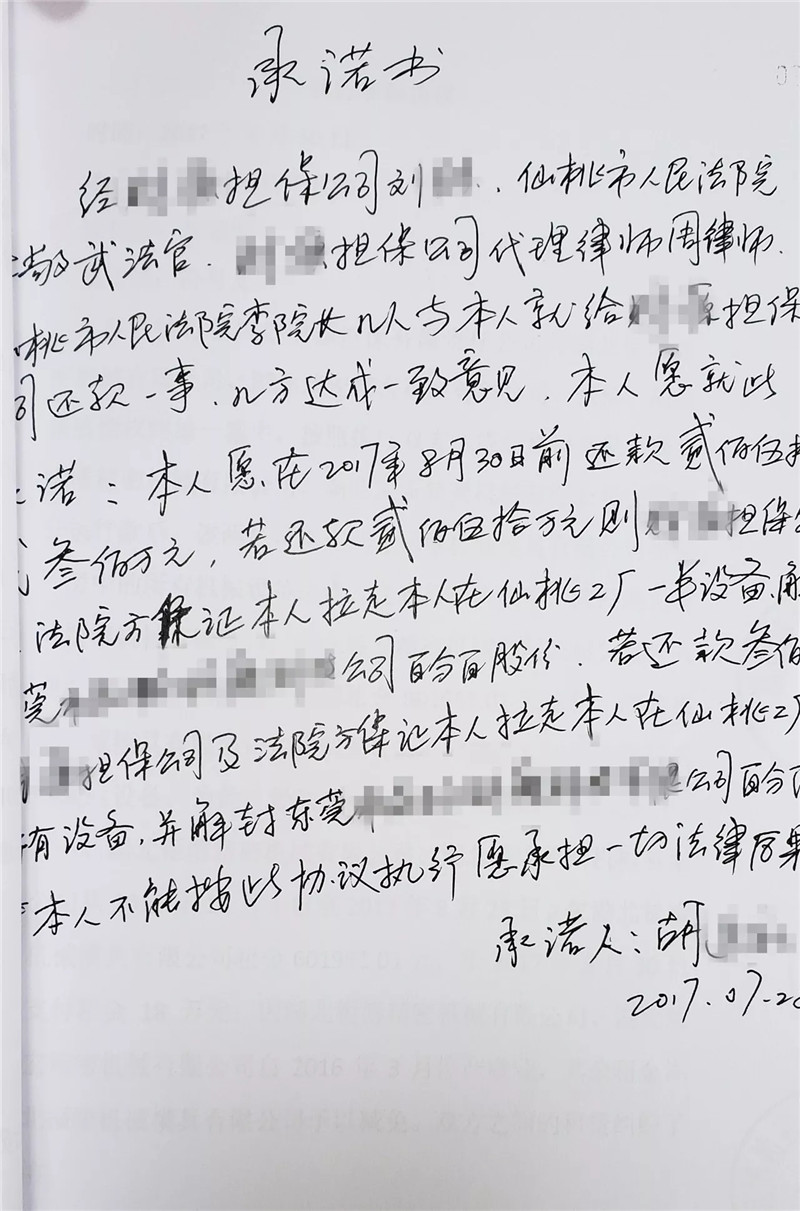 承诺书
07
经担保公司刘、仙桃市人民法院
武法官、担保公司代理律师周律师、
桃市人民法院李院长几人与本人就给担保
司还款一事、几方达成一致意见,本人愿就此
诺:本人愿在2017年8月30日前还款贰佰伍拾
叁佰万元,若还款贰佰伍拾万元则担保公
法院方保证本人拉走本人在仙桃工厂一半设备,解
莞公司百分百股份.若还款叁佰
担保公司及法院方保证本人拉走本人在仙桃工厂
有设备,并解封东莞公司百分百
本人不能按此协议执行愿承担一切法律后果
承诺人:胡
2017.07.20